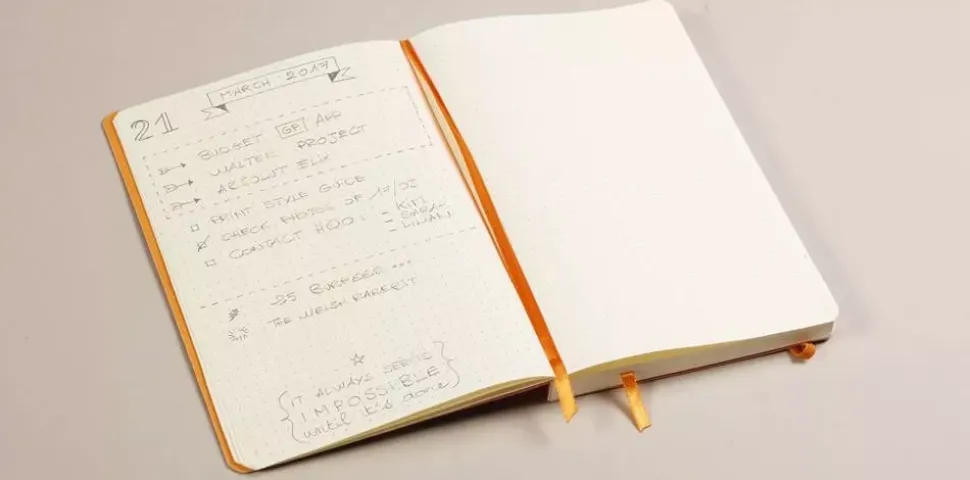 MARCH 2017
21
BUDGET GP APP
WALTER PROJECT
ACCOUNT ELIX
PRINT STYLE GUIDE
CHECK PHOTOS OF 17/02
CONTACT H00:
- KIM
- SARAH
- LILIAN
THE WELSH RAREBIT
IT ALWAYS SEEMS
IMPOSSIBLE
until it's done